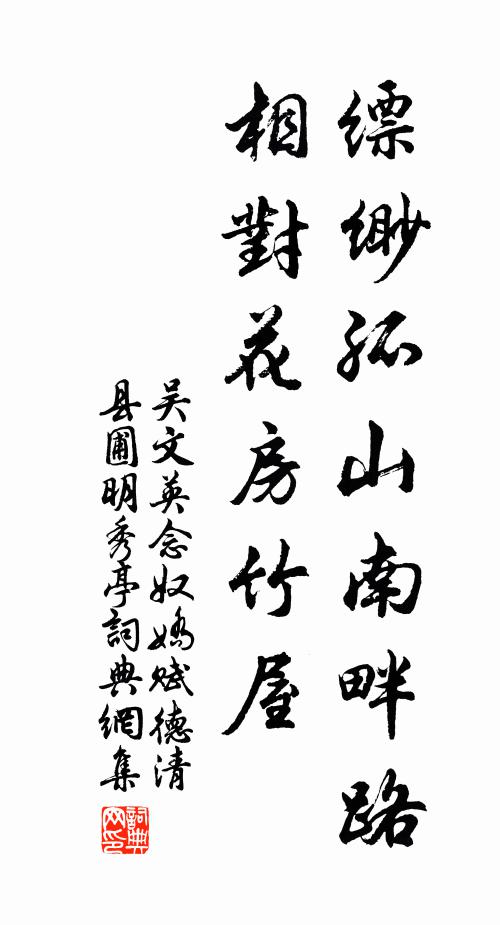 缥缈孤山南畔路
相對花房竹屋
吴文英念奴嬌赋德清
县圃明秀亭詞典網集
詞典网印